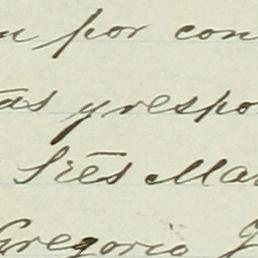 n por con
as y respo
Srēs Mar
Gregorio J